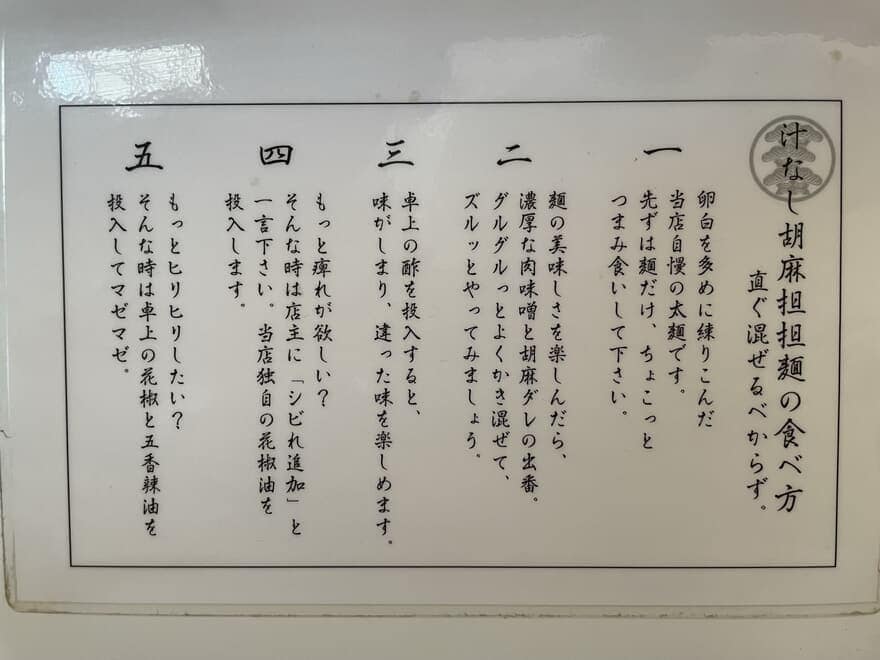 汁なし胡麻担担麺の食べ方
直ぐ混ぜるべからず。
一
卵白を多めに練りこんだ
当店自慢の太麺です。
先ずは麺だけ、ちょこっと
つまみ食いして下さい。
二
麺の美味しさを楽しんだら、
濃厚な肉味噌と胡麻ダレの出番。
ダルダルっとよくかき混ぜて、
ズルッとやってみましょう。
三
卓上の酢を投入すると、
味がしまり、違った味を楽しめます。
四
もっと痺れが欲しい？
そんな時は店主に「シビれ追加」と
一言下さい。当店独自の花椒油を
投入します。
五
もっとヒリヒリしたい？
そんな時は卓上の花椒と五香辣油を
投入してマゼマゼ。